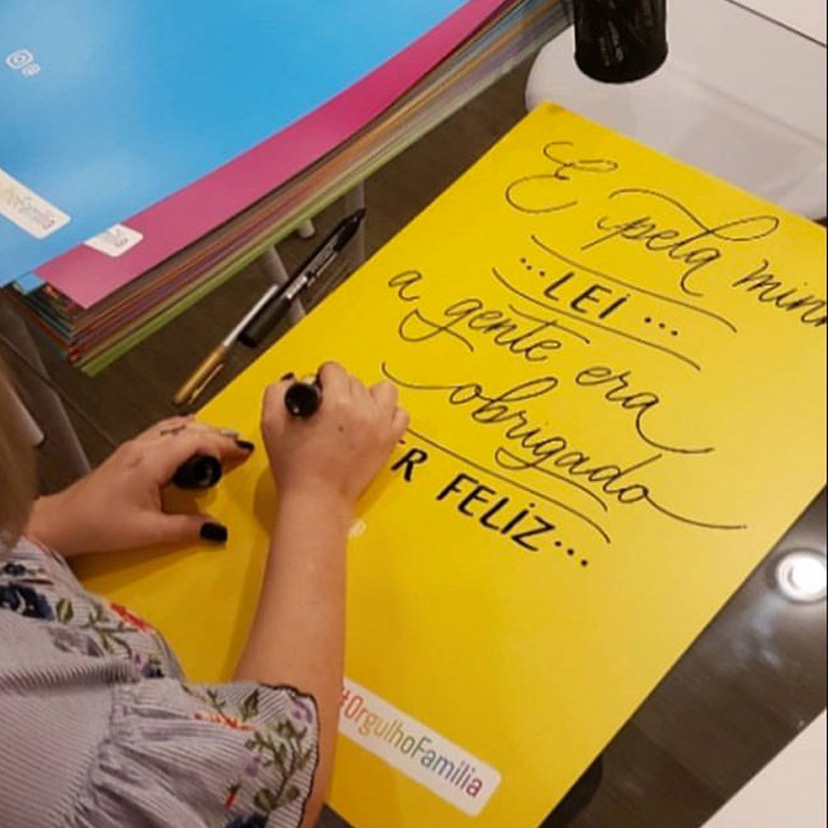 E pela minh
...LEI...
a gente era
obrigado
R FELIZ...
#OrgulhoFamília